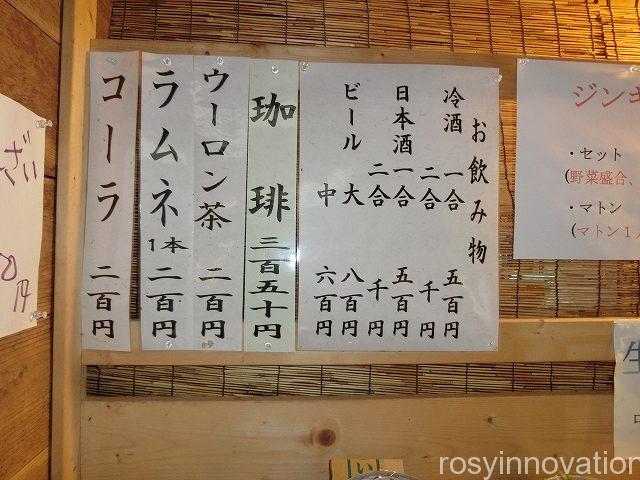 ジンギ
・セット
(野菜盛合、
・マトン
(マトン1人
お飲み物
冷酒 一合 五百円
二合 千円
日本酒 一合 五百円
二合 千円
ビール 大 八百円
中 六百円
珈琲 三百五十円
ウーロン茶 二百円
ラムネ 1本 二百円
コーラ 二百円
ざい
円
生
rosyinnovation